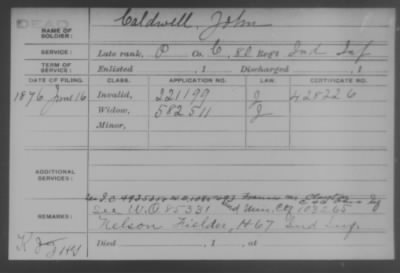 DEAD
NAME OF SOLDIER: Caldwell, John
SERVICE: Late rank, P Co. C, 80 Reg't Ind Inf
TERM OF SERVICE: Enlisted , 1 Discharged , 1
DATE OF FILING. CLASS. APPLICATION NO. LAW. CERTIFICATE NO.
1876 June 16 Invalid, 221199 J 428226
Widow, 582511 J
Minor,
ADDITIONAL SERVICES:
REMARKS: See W.O 85331
Nelson Fielder, H 67 Ind Inf
Died , 1 , at